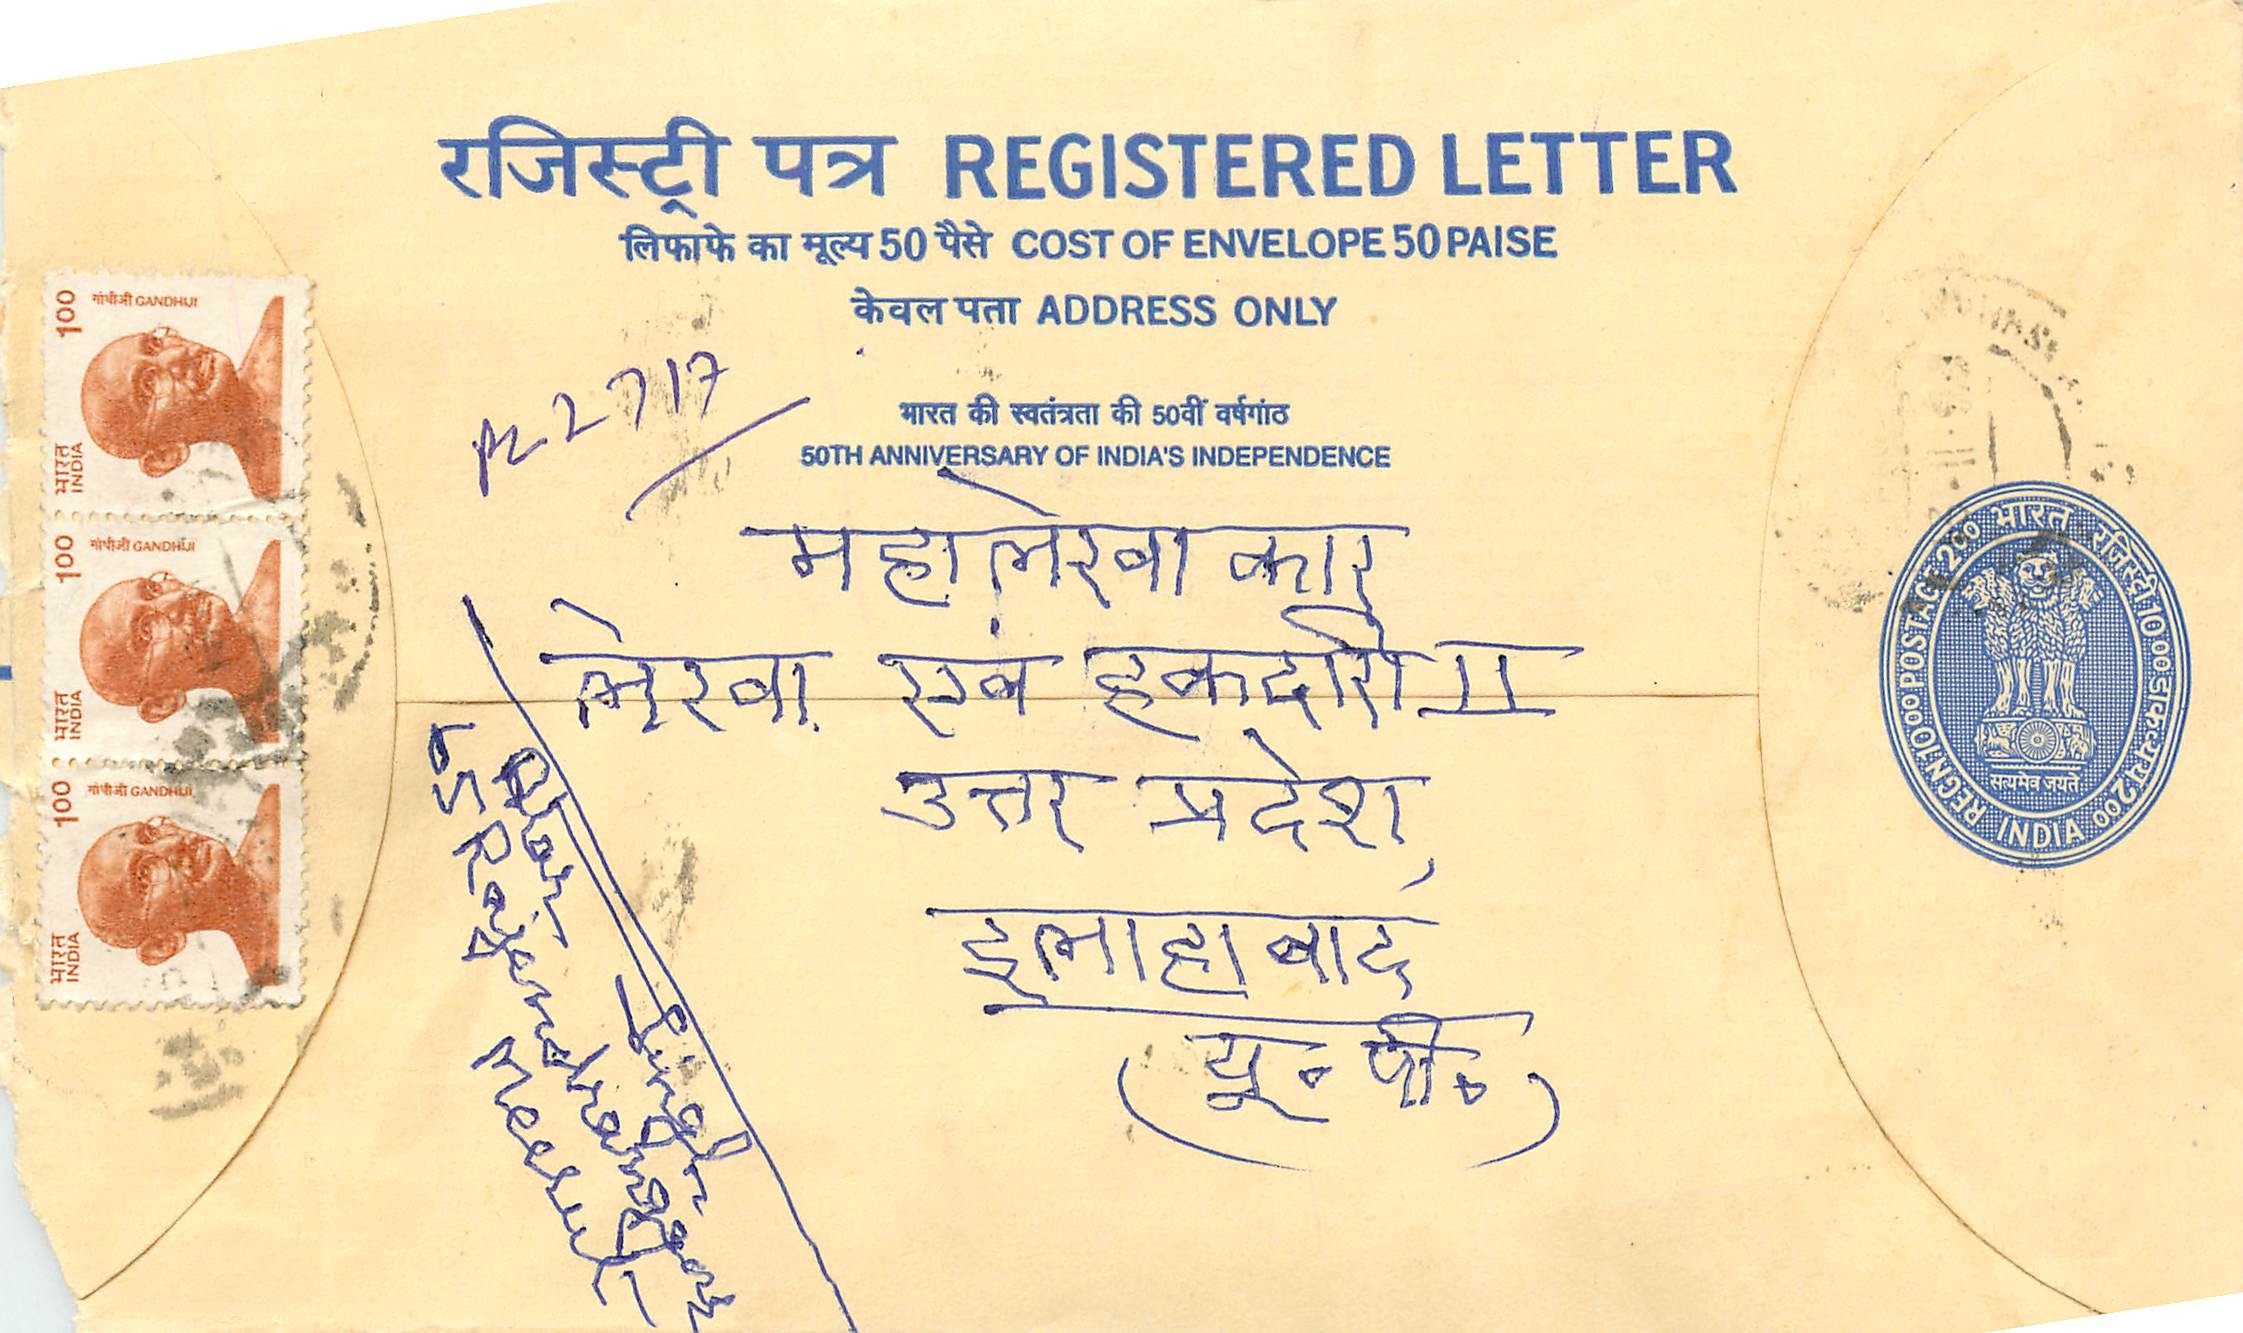 रजिस्ट्री पत्र REGISTERED LETTER
लिफाफे का मूल्य 50 पैसे COST OF ENVELOPE 50 PAISE
केवल पता ADDRESS ONLY
R 2717
भारत की स्वतंत्रता की 50वीं वर्षगांठ
50TH ANNIVERSARY OF INDIA'S INDEPENDENCE
महालेखाकार
लेखा एवं हकदारी II
उत्तर प्रदेश,
इलाहाबाद
(यू० पी०)
100 गांधीजी GANDHIJI
भारत INDIA
100 गांधीजी GANDHIJI
भारत INDIA
100 गांधीजी GANDHIJI
भारत INDIA
भारत रजिस्ट्री 10 00 डाक व्यय 2 00
REGN 10 00 POSTAGE 2 00
सत्यमेव जयते
INDIA
Singh
Meerut